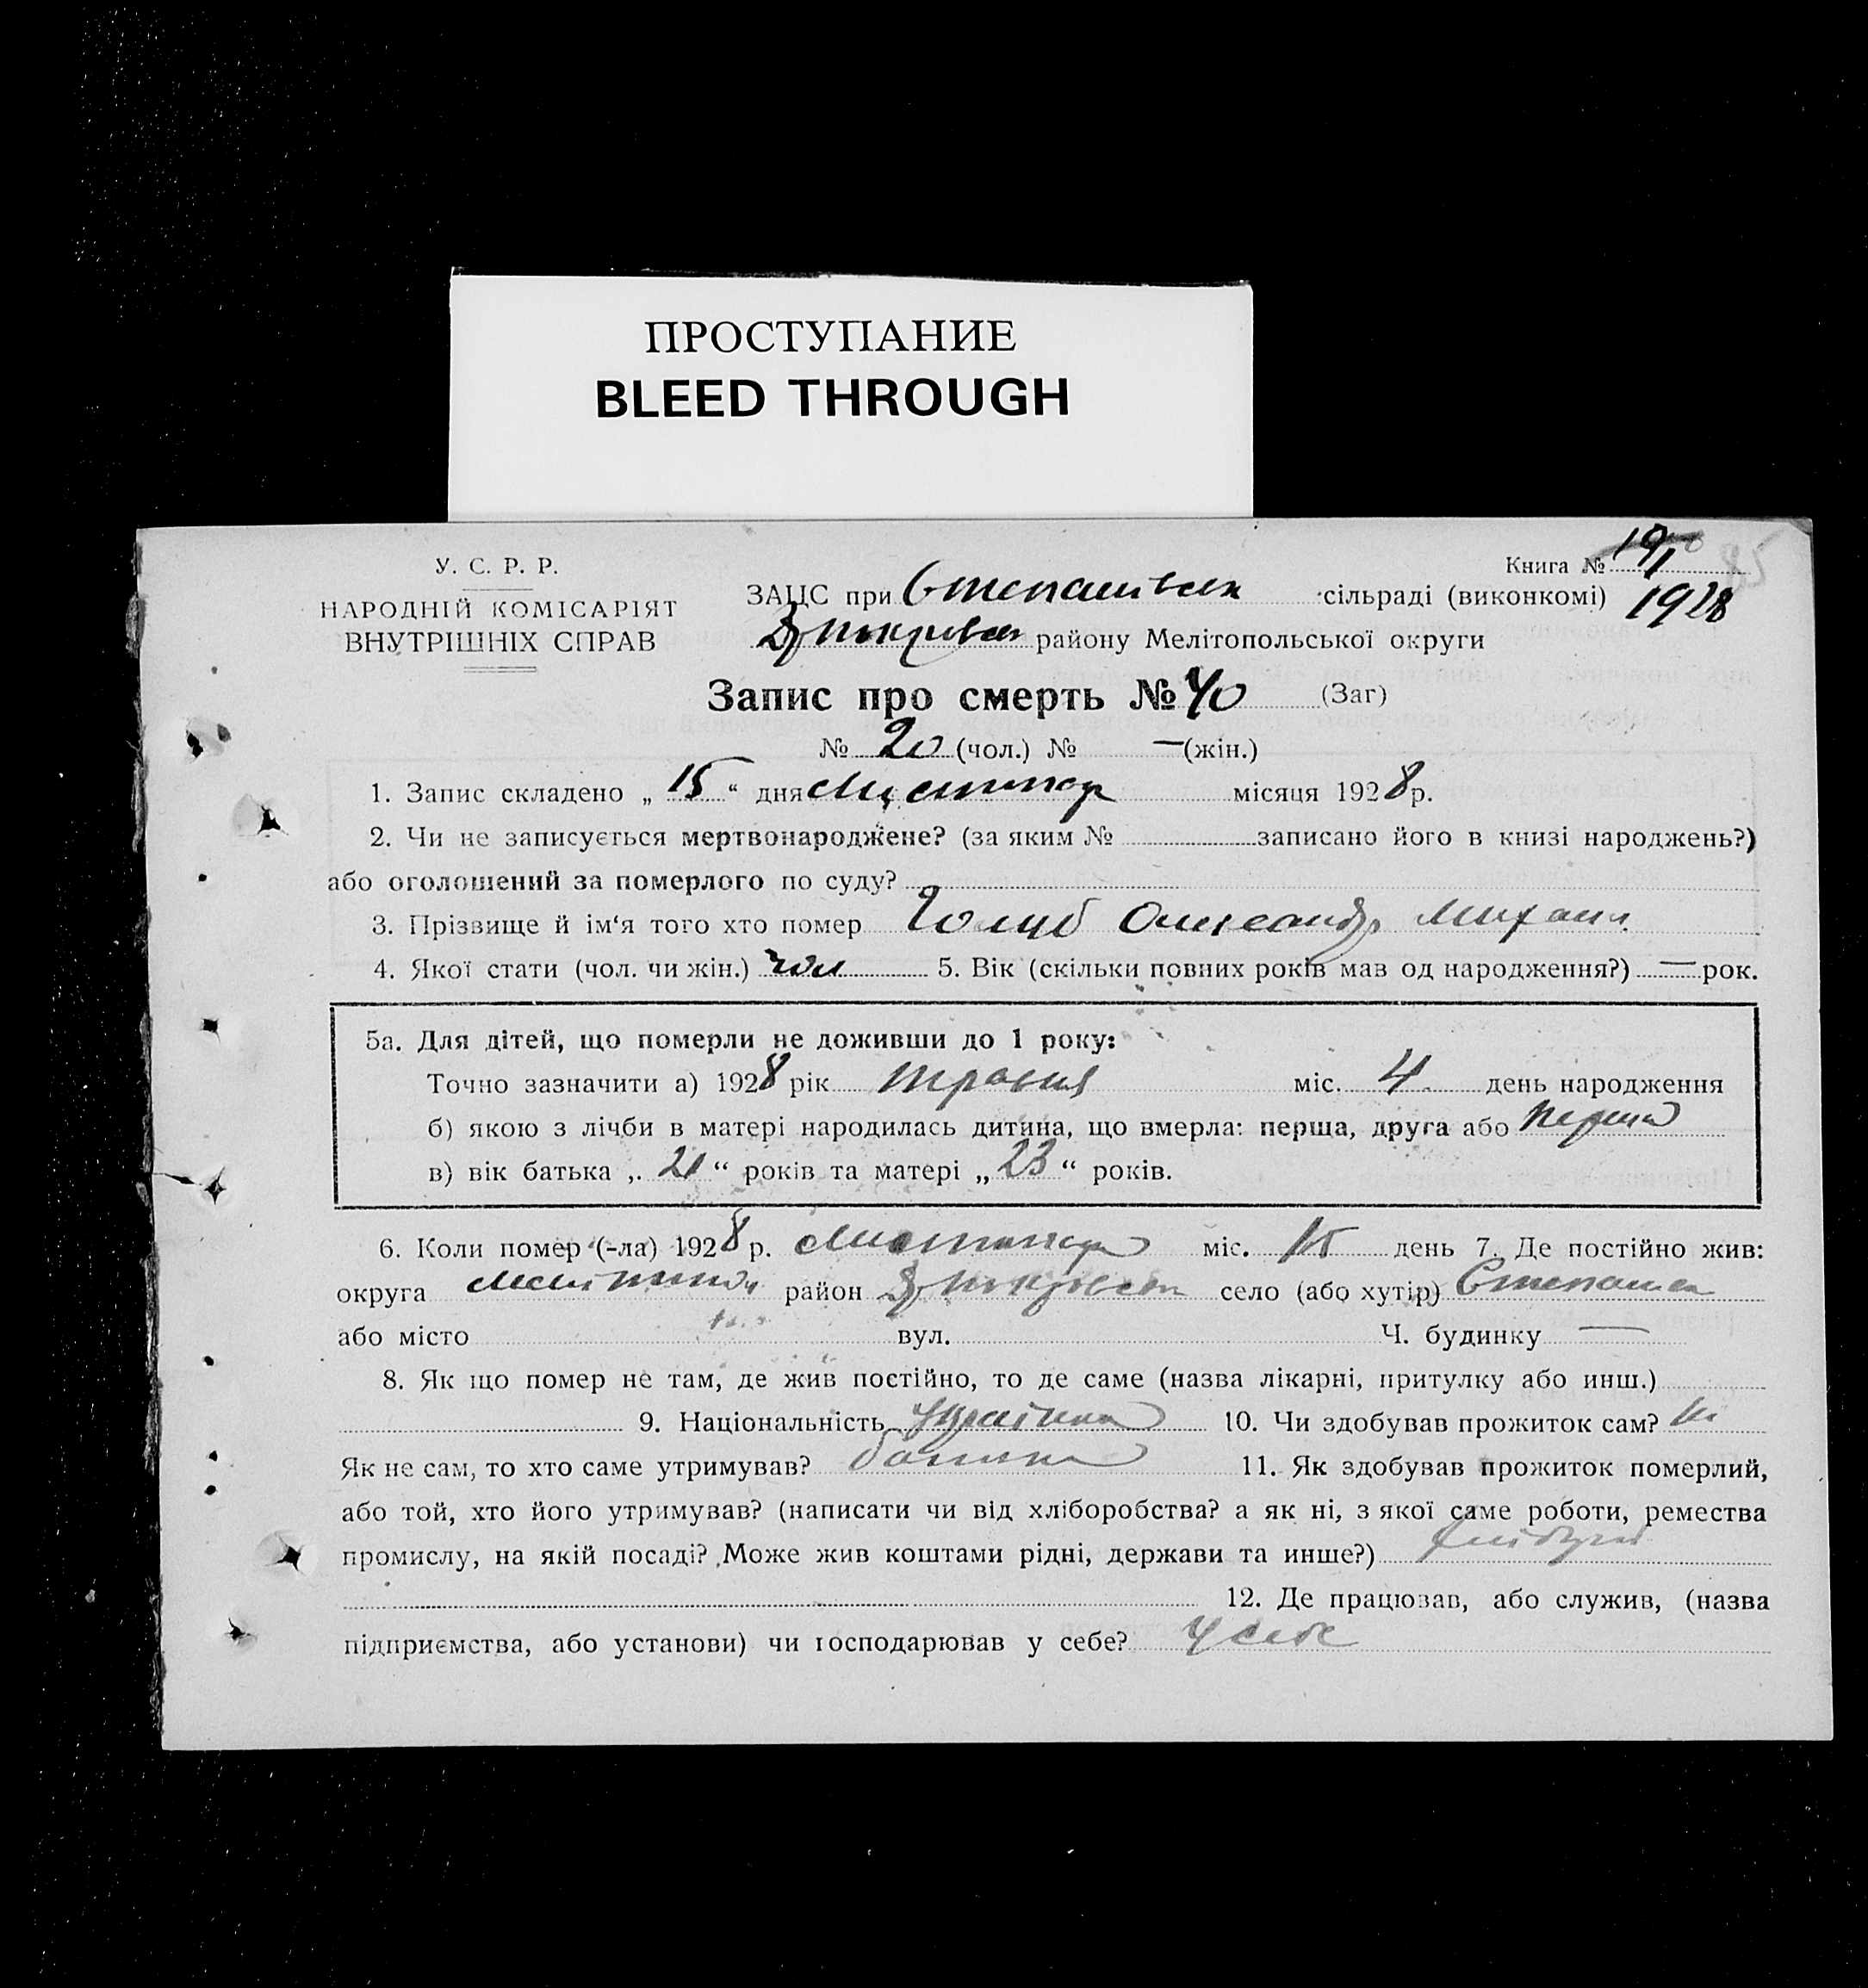 ПРОСТУПАНИЕ
BLEED THROUGH
У. С. Р. Р.
НАРОДНІЙ КОМІСАРІЯТ
ВНУТРІШНІХ СПРАВ
Книга №
1928
ЗАЦС при Степанівськ сільраді (виконкомі)
районy Мелітопольської округи
Запис про смерть № 40 (Заг)
№ 20 (чол.) № — (жін.)
1. Запис складено „ 15 “ дня Листопад місяця 1928 р.
2. Чи не записується мертвонароджене? (за яким № записано його в книзі народжень?)
або оголошений за померлого по суду?
3. Прізвище й ім‘я того хто помер Голуб Олександр Михайл.
4. Якої стати (чол. чи жін.) чол 5. Вік (скільки повних років мав од народження?) — рок.
5а. Для дітей, що померли не доживши до 1 року:
Точно зазначити а) 1928 рік травня міс. 4. день народження
б) якою з лічби в матері народилась дитина, що вмерла: перша, друга або перша
в) вік батька „ 21 “ років та матері „ 23 “ років.
6. Коли помер (-ла) 1928 р. Листопада міс. 15 день 7. Де постійно жив:
округа Мелітопол район село (або хутір) Степанівк
або місто вул. Ч. будинку —
8. Як що помер не там, де жив постійно, то де саме (назва лікарні, притулку або инш.)
9. Національність 10. Чи здобував прожиток сам? ні
Як не сам, то хто саме утримував? батько 11. Як здобував прожиток померлий,
або той, хто його утримував? (написати чи від хліборобства? а як ні, з якої саме роботи, ремества
промислу, на якій посаді? Може жив коштами рідні, держави та инше?)
12. Де працював, або служив, (назва
підприємства, або установи) чи господарював у себе? у себе